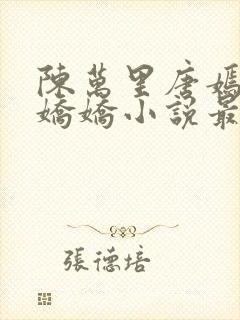 陳萬里唐嫣
嬌嬌小說最
張德培